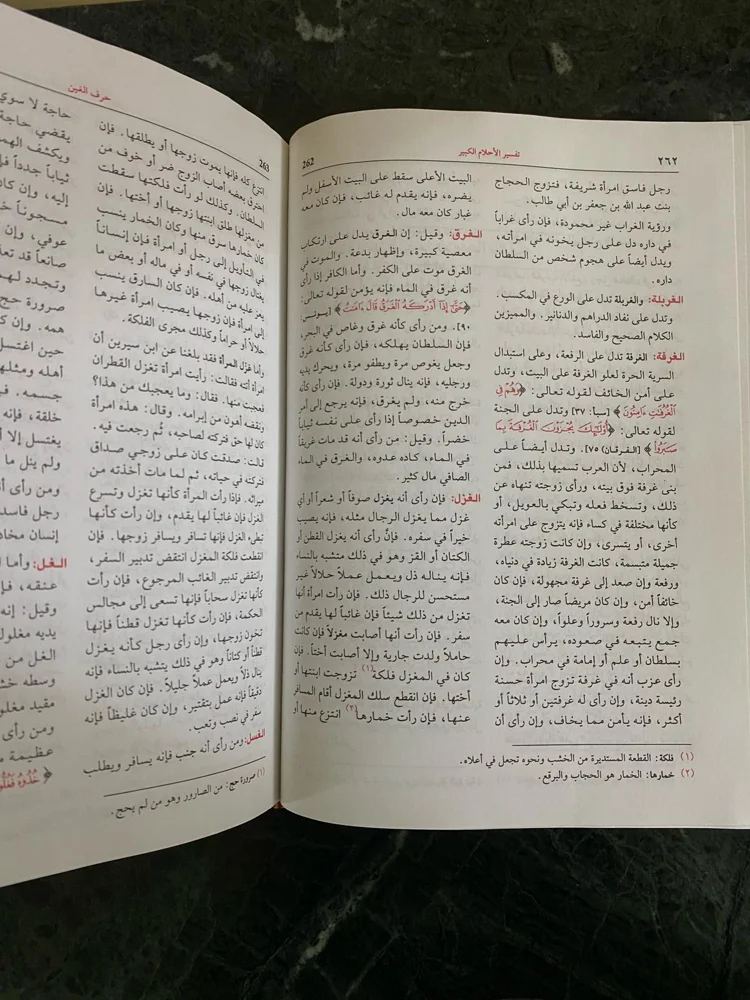 ٢٦٢
تفسير الأحلام الكبير
262
رجل فاسق امرأة شريفة، فتزوج الحجاج
بنت عبد الله بن جعفر بن أبي طالب.
ورؤية الغراب غير محمودة، فإن رأى غراباً
في داره دل على رجل يخونه في امرأته،
ويدل أيضاً على هجوم شخص من السلطان
داره.
الغربلة: والغربلة تدل على الورع في المكسب.
وتدل على نفاد الدراهم والدنانير. والمميزين
الكلام الصحيح والفاسد.
الغرفة: الغرفة تدل على الرفعة، وعلى استبدال
السرية الحرة لعلو الغرفة على البيت، وتدل
على أمن الخائف لقوله تعالى: ﴿وَهُمْ فِي
الْغُرُفَاتِ آمِنُونَ﴾ [سبأ: ٣٧] وتدل على الجنة
لقوله تعالى: ﴿أُوْلَئِكَ يُجْزَوْنَ الْغُرْفَةَ بِمَا
صَبَرُوا﴾ [الفرقان: ٧٥]. وتدل أيضاً على
المحراب، لأن العرب تسميها بذلك، فمن
بنى غرفة فوق بيته، ورأى زوجته تنهاه عن
ذلك، وتسخط فعله وتبكي بالعويل، أو
كأنها مختلفة في كساء فإنه يتزوج على امرأته
أخرى، أو يتسرى، وإن كانت زوجته عطرة
جميلة متبسمة، كانت الغرفة زيادة في دنياه،
ورفعة وإن صعد إلى غرفة مجهولة، فإن كان
خائفاً أمن، وإن كان مريضاً صار إلى الجنة،
وإلا نال رفعة وسروراً وعلواً، وإن كان معه
جمع يتبعه في صعوده، يرأس عليهم
بسلطان أو علم أو إمامة في محراب. وإن
رأى عزب أنه في غرفة تزوج امرأة حسنة
رئيسة دينة، وإن رأى له غرفتين أو ثلاثاً أو
أكثر، فإنه يأمن مما يخاف، وإن رأى أن
البيت الأعلى سقط على البيت الأسفل ولم
يضره، فإنه يقدم له غائب، فإن كان معه
غبار كان معه مال.
الغرق: وقيل: إن الغرق يدل على ارتكاب
معصية كبيرة، وإظهار بدعة. والموت في
الغرق موت على الكفر. وأما الكافر إذا رأى
أنه غرق في الماء فإنه يؤمن لقوله تعالى:
﴿حَتَّى إِذَا أَدْرَكَهُ الْغَرَقُ قَالَ آمَنتُ﴾ [يونس:
٩٠]. ومن رأى كأنه غرق وغاص في البحر،
فإن السلطان يهلكه، فإن رأى كأنه غرق
وجعل يغوص مرة ويطفو مرة، ويحرك يديه
ورجليه، فإنه ينال ثورة ودولة. فإن رأى كأنه
خرج منه، ولم يغرق، فإنه يرجع إلى أمر
الدين خصوصاً إذا رأى على نفسه ثياباً
خضراً. وقيل: من رأى أنه قد مات غريقاً
في الماء، كاده عدوه، والغرق في الماء
الصافي مال كثير.
الغزل: فإن رأى أنه يغزل صوفاً أو شعراً أو أي
غزل مما يغزل الرجال مثله، فإنه يصيب
خيراً في سفره. فإن رأى أنه يغزل القطن أو
الكتان أو القز وهو في ذلك متشبه بالنساء
فإنه يناله ذل ويعمل عملاً حلالاً غير
مستحسن للرجال ذلك. فإن رأت امرأة أنها
تغزل من ذلك شيئاً فإن غائباً لها يقدم من
سفر. فإن رأت أنها أصابت مغزلاً فإن كانت
حاملاً ولدت جارية وإلا أصابت أختاً. فإن
كان في المغزل فلكة(١) تزوجت ابنتها أو
أختها. فإن انقطع سلك المغزل أقام المسافر
عنها، فإن رأت خمارها(٢) انتزع منها أو
(١) فلكة: القطعة المستديرة من الخشب ونحوه تجعل في أعلاه.
(٢) خمارها: الخمار هو الحجاب والبرقع.
حرف الغين
263
انتزع كله فإنها يموت زوجها أو يطلقها. فإن
احترق بعضه أصاب الزوج ضر أو خوف من
السلطان. وكذلك لو رأت فلكتها سقطت
من مغزلها طلق ابنتها زوجها أو أختها. فإن
كان خمارها سرق منها وكان الخمار ينسب
في التأويل إلى رجل أو امرأة فإن إنساناً
يغتال زوجها في نفسه أو في ماله أو بعض ما
يعز عليه من أهله. فإن كان السارق ينسب
إلى امرأة فإن زوجها يصيب امرأة غيرها
حلالاً أو حراماً وكذلك مجرى الفلكة.
وأما غزل المرأة فقد بلغنا عن ابن سيرين أن
امرأة أتته فقالت: رأيت امرأة تغزل القطران
فعجبت منها. فقال: وما يعجبك من هذا؟
ونقضه أهون من إبرامه. وقال: هذه امرأة
كان لها حق فتركته لصاحبه، ثم رجعت فيه.
قالت: صدقت كان على زوجي صداق
فتركته في حياته، ثم لما مات أخذته من
ميراثه. فإذا رأت المرأة كأنها تغزل وتسرع
الغزل فإن غائباً لها يقدم، وإن رأت كأنها
تبطىء الغزل فإنها تسافر ويسافر زوجها. فإن
انقطعت فلكة المغزل انتقض تدبير السفر،
وانتقض تدبير الغائب المرجوع، فإن رأت
كأنها تغزل سحاباً فإنها تسعى إلى مجالس
الحكمة، فإن رأت كأنها تغزل قطناً فإنها
تخون زوجها، وإن رأى رجل كأنه يغزل
قطناً أو كتاناً وهو في ذلك يتشبه بالنساء فإنه
ينال ذلاً ويعمل عملاً جليلاً. فإن كان الغزل
دقيقاً فإنه عمل بتقتير، وإن كان غليظاً فإنه
سفر في نصب وتعب.
الغسل: ومن رأى أنه جنب فإنه يسافر ويطلب
(١) صرورة حج: من الصارور وهو من لم يحج.
حاجة لا سوي
يقضي حاجة
ويكشف الهم
ثياباً جدداً
إليه، وإن كان
مسجوناً
عوفي، وإن
صانعاً قد
وتجدد لهم
صرورة حج
همه. وإن
حين اغتسل
أهله ومثلها
جسمه.
خلقة، فإنه
يغتسل إلا
ولم ينل ما
ومن رأى
رجل فاسد
إنسان
الغل: وأما
عنقه،
وقيل: إنه
يديه مغلول
الغل من
وسطه
مقيد مغلول
ومن رأى
عظيمة
﴿خُذُوهُ فَغُلُّوهُ